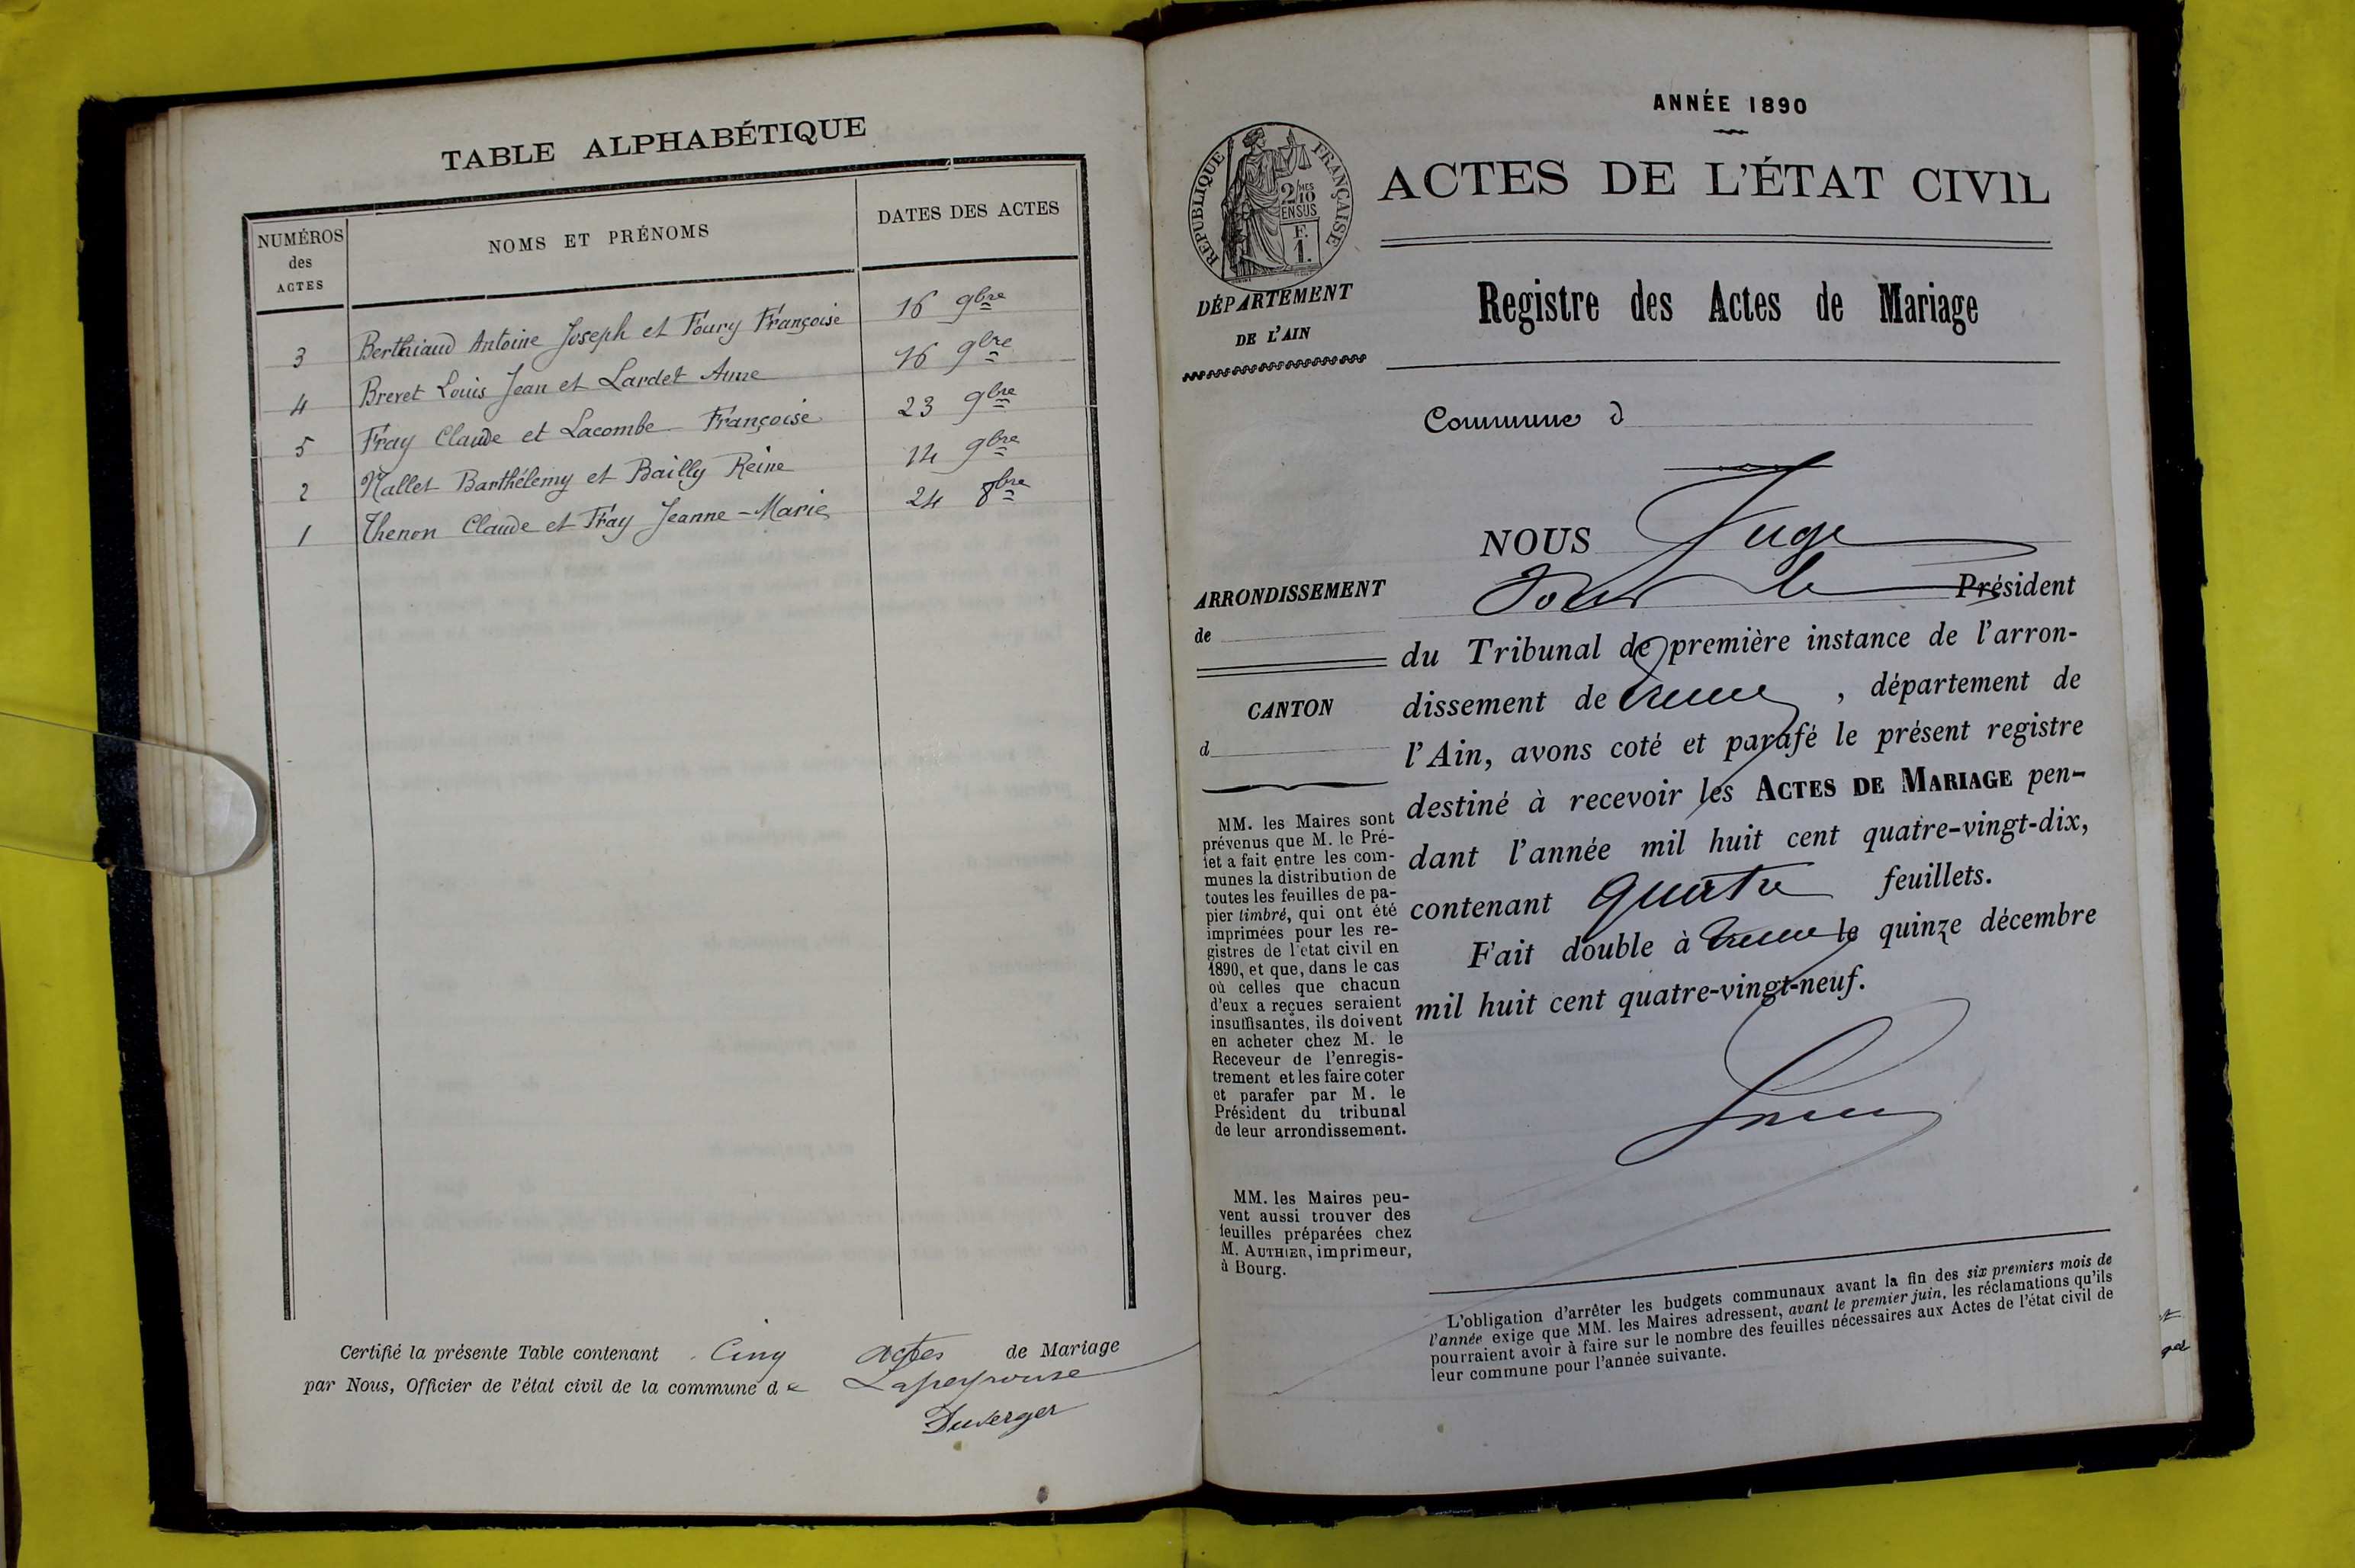 TABLE ALPHABÉTIQUE
NUMÉROS
des
ACTES
NOMS ET PRÉNOMS
DATES DES ACTES
3 Berthiaud Antoine Joseph et Foury Françoise 16 9bre
4 Brevet Louis Jean et Lardet Anne 16 9bre
5 Fray Claude et Lacombe Françoise 23 9bre
2 Mallet Barthélemy et Bailly Reine 14 9bre
1 Thenon Claude et Fray Jeanne-Marie 24 8bre
Certifié la présente Table contenant Cinq actes de Mariage
par Nous, Officier de l'état civil de la commune de Lapeyrouse
Duverger
ANNÉE 1890
RÉPUBLIQUE FRANÇAISE
2/10 MES
EN SUS
F.
1.
ACTES DE L'ÉTAT CIVIL
DÉPARTEMENT
DE L'AIN
Registre des Actes de Mariage
Commune d
NOUS Juge
pour le Président
du Tribunal de première instance de l'arron-
dissement de Trévoux, département de
l'Ain, avons coté et parafé le présent registre
destiné à recevoir les ACTES DE MARIAGE pen-
dant l'année mil huit cent quatre-vingt-dix,
contenant quatre feuillets.
Fait double à Trévoux le quinze décembre
mil huit cent quatre-vingt-neuf.
ARRONDISSEMENT
de
CANTON
d
MM. les Maires sont
prévenus que M. le Pré-
fet a fait entre les com-
munes la distribution de
toutes les feuilles de pa-
pier timbré, qui ont été
imprimées pour les re-
gistres de l'état civil en
1890, et que, dans le cas
où celles que chacun
d'eux a reçues seraient
insuffisantes, ils doivent
en acheter chez M. le
Receveur de l'enregis-
trement et les faire coter
et parafer par M. le
Président du tribunal
de leur arrondissement.
MM. les Maires peu-
vent aussi trouver des
feuilles préparées chez
M. AUTHIER, imprimeur,
à Bourg.
L'obligation d'arrêter les budgets communaux avant la fin des six premiers mois de
l'année exige que MM. les Maires adressent, avant le premier juin, les réclamations qu'ils
pourraient avoir à faire sur le nombre des feuilles nécessaires aux Actes de l'état civil de
leur commune pour l'année suivante.